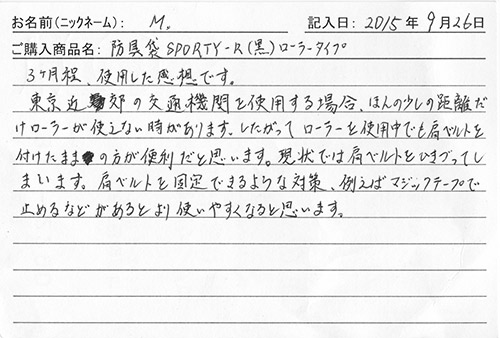 お名前(ニックネーム): M. 記入日: 2015年 9月26日
ご購入商品名: 防具袋SPORTY-R(黒)ローラータイプ
3ヶ月程、使用した感想です。
東京近郊の交通機関を使用する場合、ほんの少しの距離だ
けローラーが使えない時があります。したがってローラーを使用中でも肩ベルトを
付けたままの方が便利だと思います。現状では肩ベルトをひきづってし
まいます。肩ベルトを固定できるような対策、例えばマジックテープで
止めるなどがあるとより使いやすくなると思います。